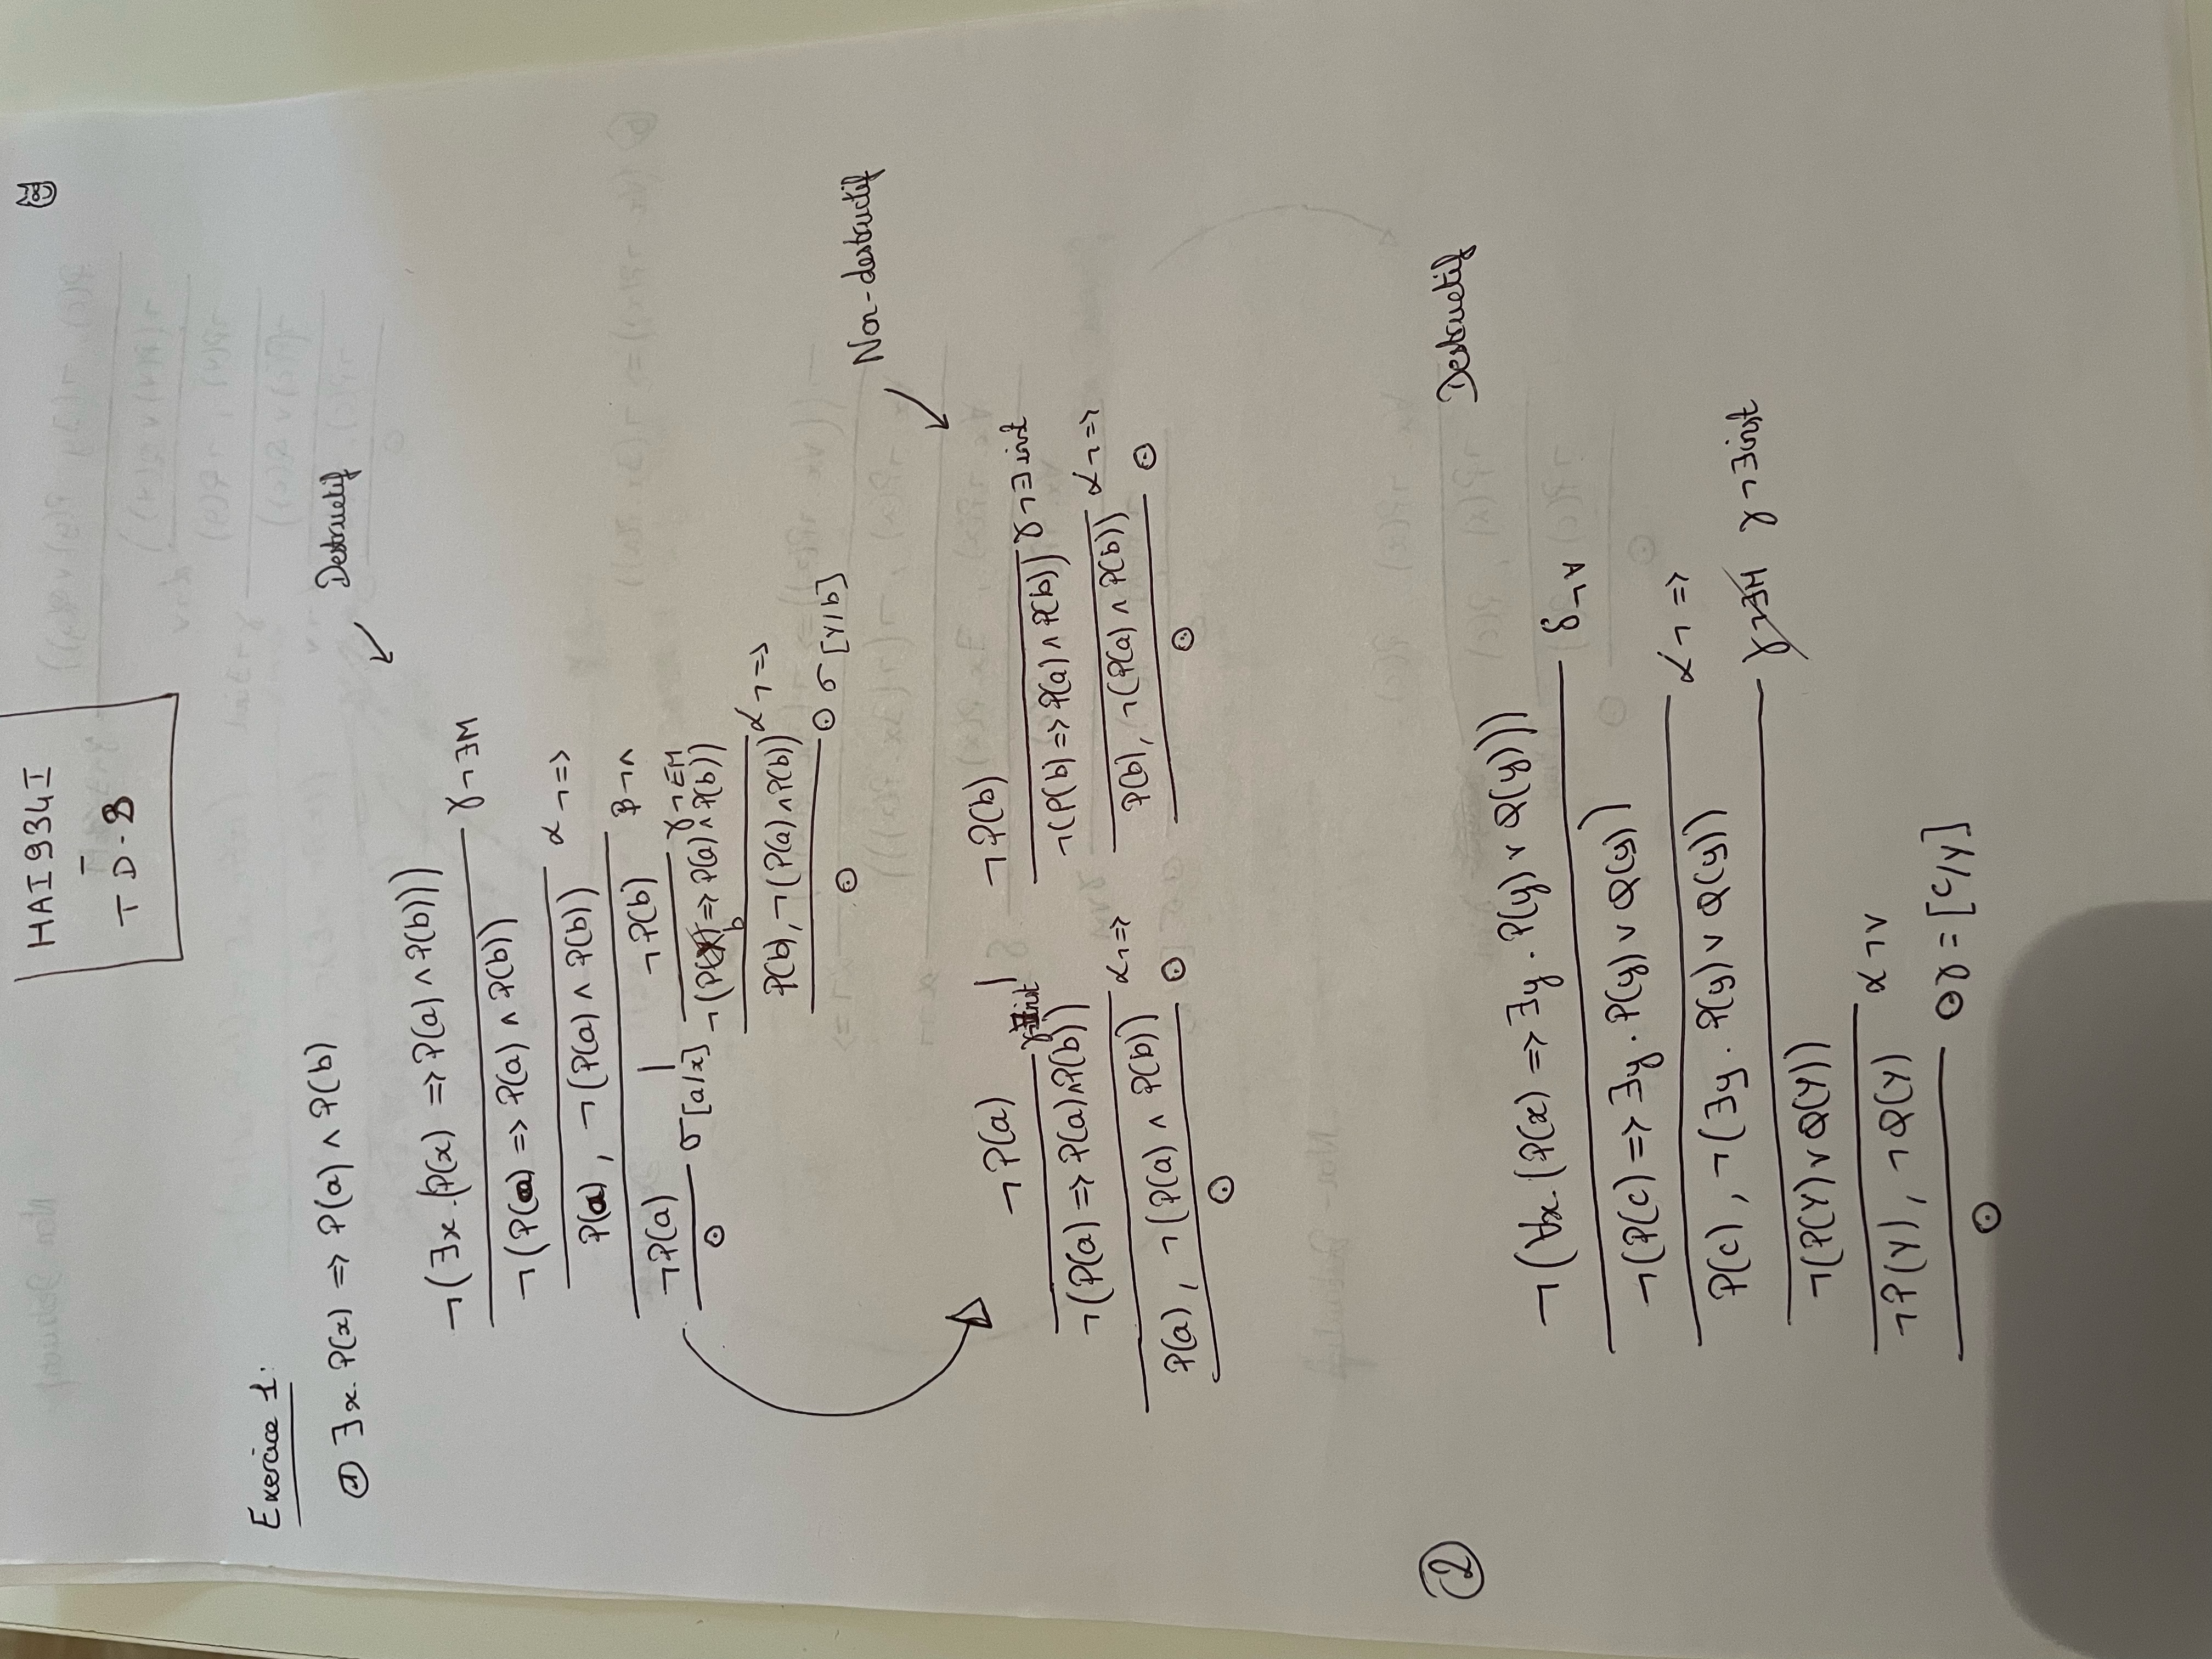 HAI934I
-
TD-3
Exercice 1:
① ∃x. P(x) => P(a) ∧ P(b)
Destructif
¬(∃x.(P(x) => P(a) ∧ P(b)))
γ¬∃M
¬(P(a) => P(a) ∧ P(b))
α¬=>
P(a), ¬(P(a) ∧ P(b))
β¬∧
¬P(a) | ¬P(b)
⊙ σ[a/x] γ¬∃M
¬(P( b ) => P(a) ∧ P(b))
α¬=>
P(b), ¬(P(a) ∧ P(b))
⊙ σ[Y/b]
⊙
Non-destructif
¬P(a) | ¬P(b)
γ¬∃inst γ¬∃inst
¬(P(a) => P(a)∧P(b)) ¬(P(b) => P(a) ∧ P(b))
α¬=> α¬=>
P(a), ¬(P(a) ∧ P(b)) P(b), ¬(P(a) ∧ P(b))
⊙ ⊙
⊙ ⊙
②
Destructif
¬(∀x.(P(x) => ∃y. P(y) ∨ Q(y)))
δ¬∀
¬(P(c) => ∃y. P(y) ∨ Q(y))
α¬=>
P(c), ¬(∃y. P(y) ∨ Q(y))
γ¬∃M γ¬∃inst
¬(P(Y) ∨ Q(Y))
α¬∨
¬P(Y), ¬Q(Y)
⊙γ = [c/Y]
⊙